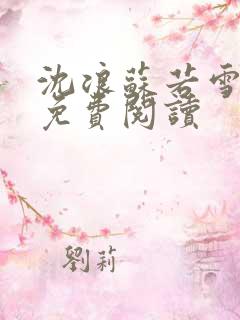 沈浪蘇若雪
免費閱讀
劉莉